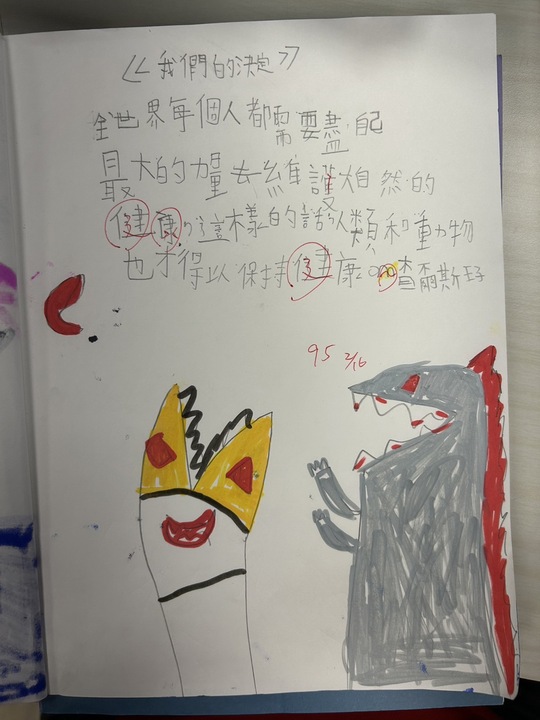 《我們的決定》
全世界每個人都需要盡自己
最大的力量去維護大自然的
健康，這樣的話人類和動物
也才得以保持健康。查爾斯王子
95 2/16